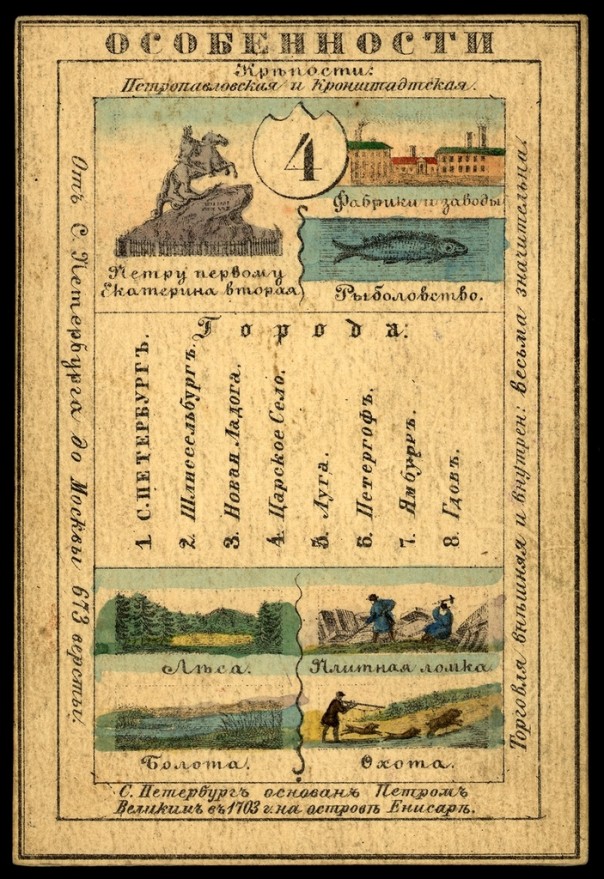 ОСОБЕННОСТИ
Крѣпости:
Петропавловская и Кронштадтская.
4
Фабрики и заводы
Петру первому
Екатерина вторая
Рыболовство.
Города:
1. С. ПЕТЕРБУРГЪ.
2. Шлиссельбургъ.
3. Новая Ладога.
4. Царское Село.
5. Луга.
6. Петергофъ.
7. Ямбургъ.
8. Гдовъ.
Лѣса.
Плитная ломка
Болота.
Охота.
С. Петербургъ основанъ Петромъ
Великимъ въ 1703 г. на островѣ Енисарѣ.
Отъ С. Петербурга до Москвы 673 версты.
Торговля внѣшняя и внутрен: весьма значительна.